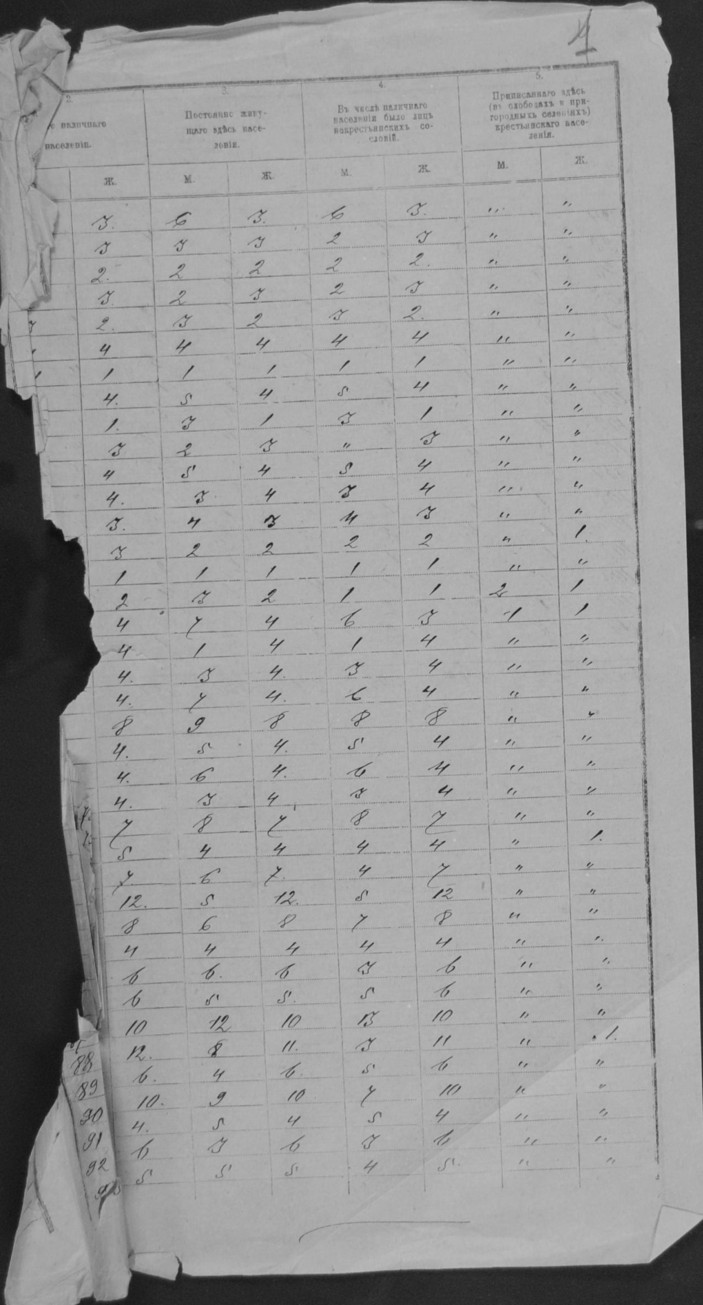 4
2. 3. 4. 5.
наличнаго Постоянно живу- Въ числѣ наличнаго Приписаннаго здѣсь
населенія. щаго здѣсь насе- населенія было лицъ (въ слободахъ и при-
ленія. некрестьянскихъ со- городныхъ селеніяхъ)
словій. крестьянскаго насе-
ленія.
Ж. М. Ж. М. Ж. М. Ж.
3. 6 3. 6 3. " "
3 3 3 2 3 " "
2. 2 2 2 2. " "
3. 2 3 2 3 " "
2. 3 2 3 2. " "
4 4 4 4 4 " "
1 1 1 1 1 " "
4. 5 4 5 4 " "
1. 3 1 3 1 " "
3 2 3 " 3 " "
4 5 4 5 4 " "
4. 3 4 3 4 " "
3. 4 3 4 3 " "
3 2 2 2 2 " 1.
1 1 1 1 1 " "
2 3 2 1 1 2 1
4 7 4 6 3 1 1
4 1 4 1 4 " "
4. 3 4. 3 4 " "
4. 7 4. 6 4 " "
8 9 8 8 8 " "
4. 5 4. 5 4 " "
4. 6 4. 6 4 " "
4. 3 4 3 4 " "
7 8 7 8 7 " "
5 4 4 4 4 " 1.
7 6 7. 4 7 " "
12. 5 12. 5 12 " "
8 6 8 7 8 " "
4 4 4 4 4 " "
6 6. 6 3 6 " "
6 5 5. 5 6 " "
10 12 10 13 10 " "
12. 8 11. 3 11 " 1.
88 6. 4 6. 5 6 " "
89 10. 9 10 7 10 " "
90 4. 5 4 5 4 " "
91 6 3 6 3 6 " "
92 5 5 5 4 5 " "